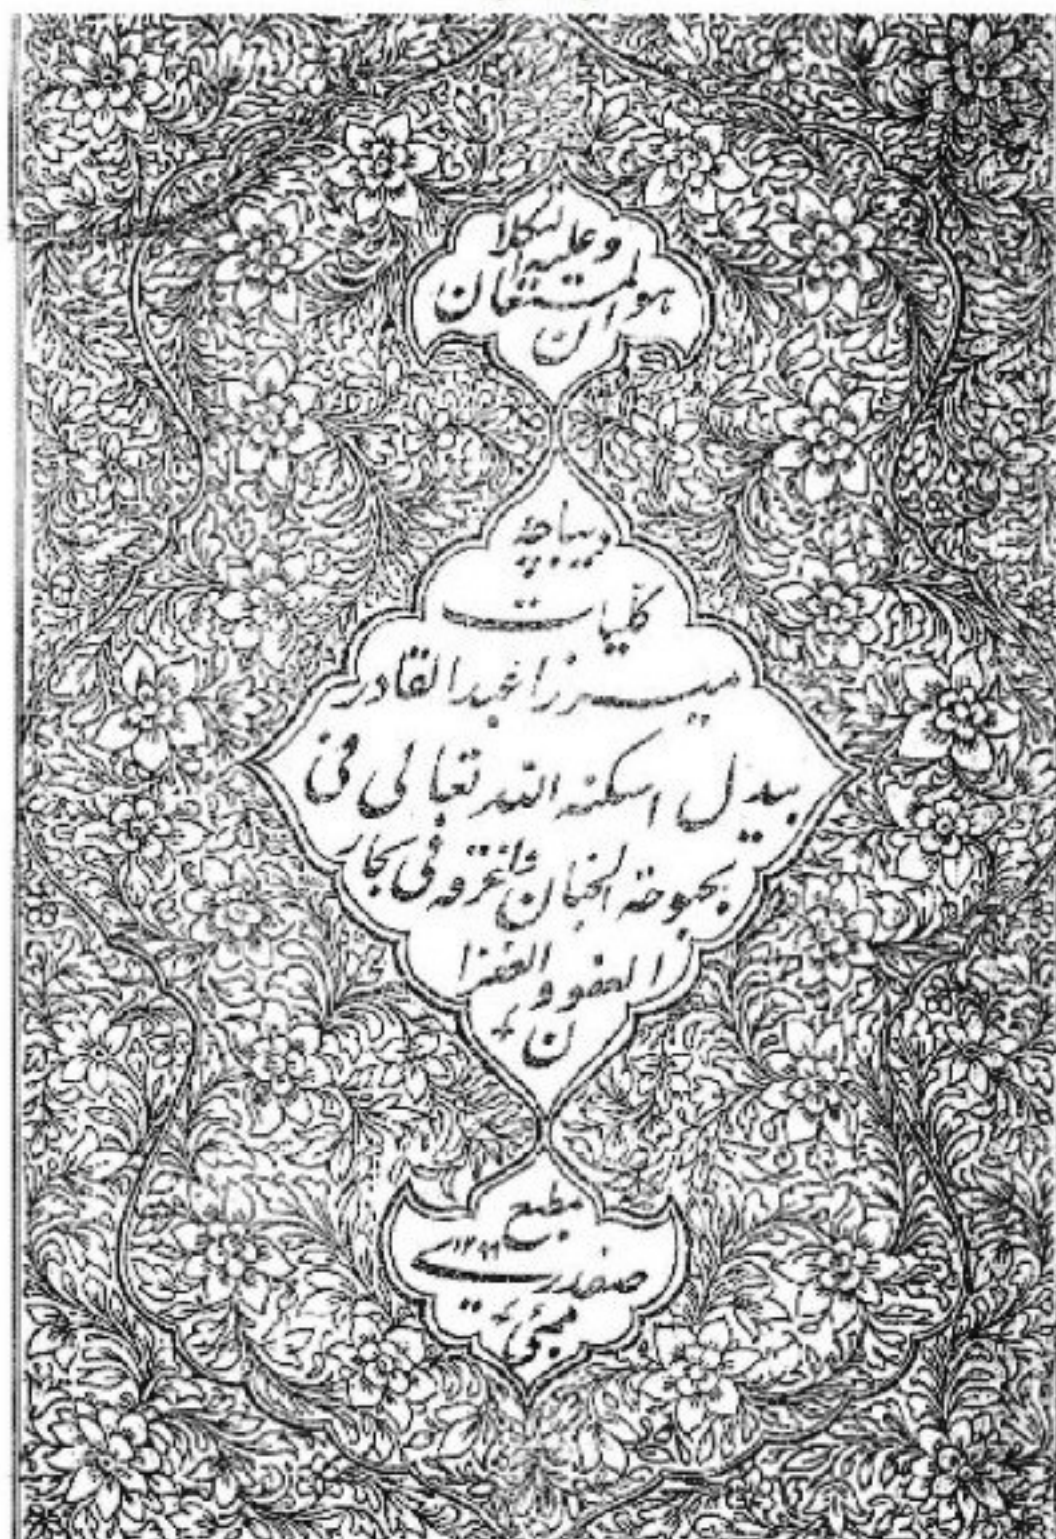 هو المستعان
وعلیه التکلان
دیباچهٔ
کلیات
میرزا عبدالقادر
بیدل اسکنه الله تعالی فی
بحبوحة الجنان واغرقه فی بحار
العفو و الغفرا
ن
مطبع
صفدری ۱۲۹۹
بمبئی